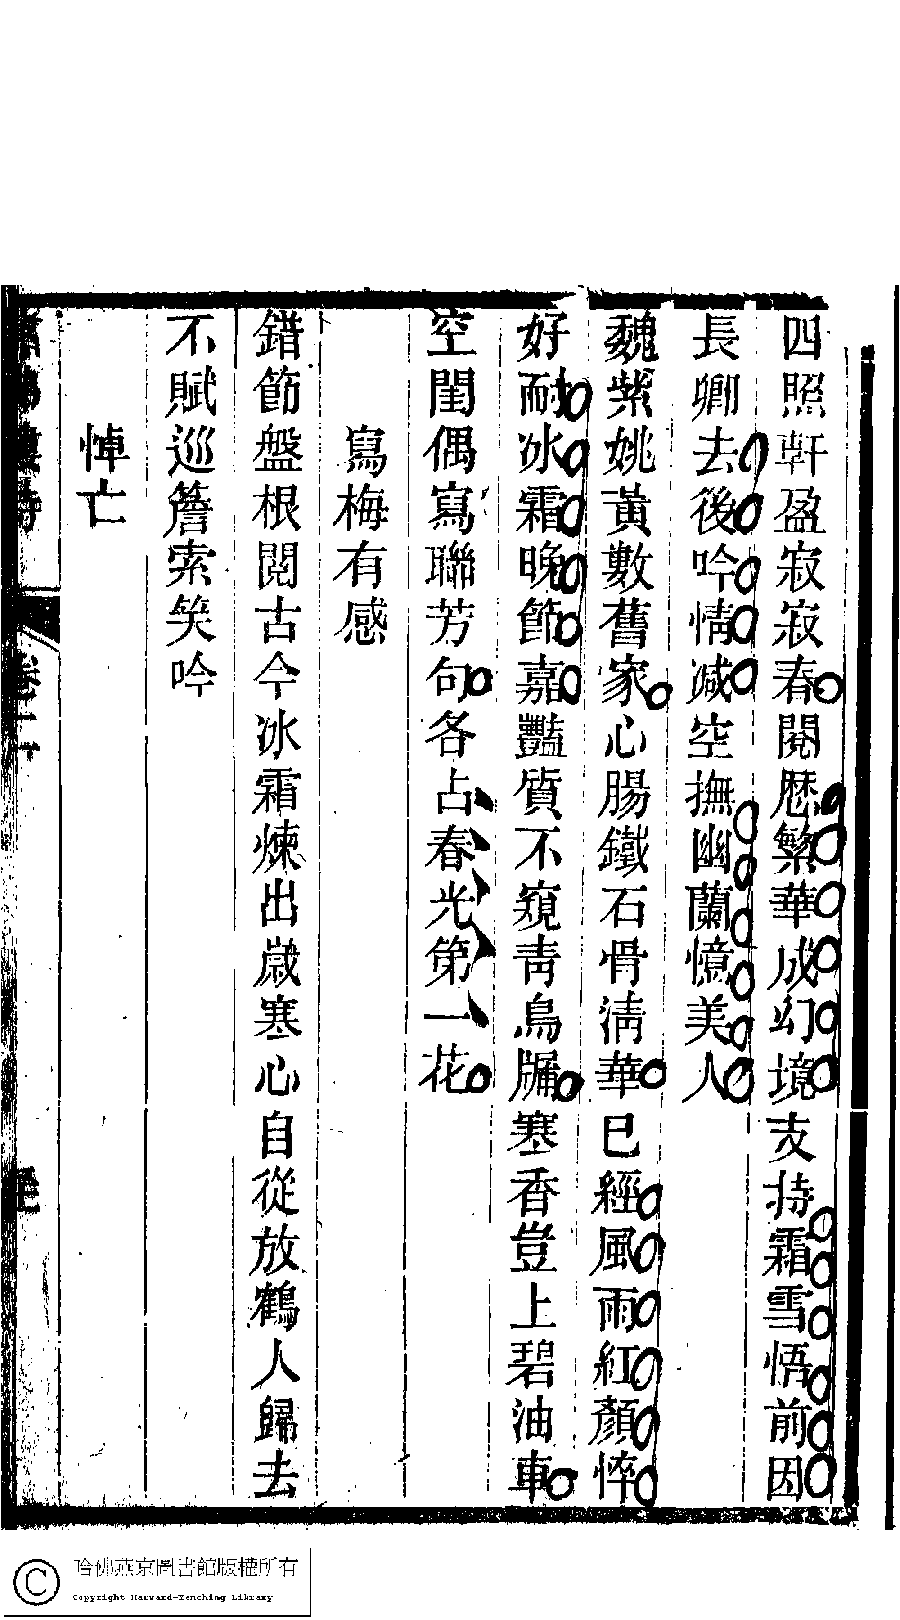 四照軒盈寂寂春閱歷繁華成幻境支持霜雪悟前因
長卿去後吟情減空撫幽蘭憶美人
魏紫姚黃數舊家心腸鐵石骨清華已經風雨紅顏悴
好耐冰霜晚節嘉豔質不窺青鳥牖寒香豈上碧油車
空閨偶寫聯芳句各占春光第一花
寫梅有感
錯節盤根閱古今冰霜煉出歲寒心自從放鶴人歸去
不賦巡簷索笑吟
悼亡
哈佛燕京圖書館版權所有
Copyright Harvard-Yenching Library